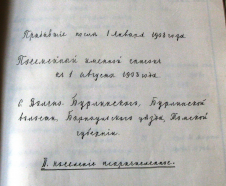 Прибывшие после 1 января 1903 года
Посемейный именной список
на 1 августа 1903 года
С. Долгно-Бурлинского, Бурлинской
волости, Барнаульского уезда, Томской
губернии.
В. поселение